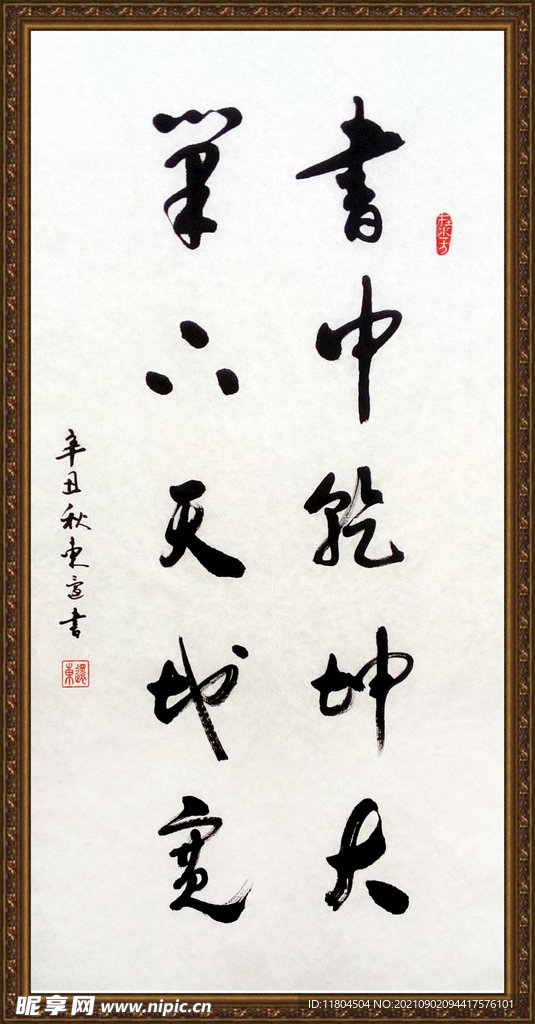 書中乾坤大
筆下天地寬
辛丑秋東遠書
昵享网 www.nipic.cn
ID:11804504 NO:20210902094417576101